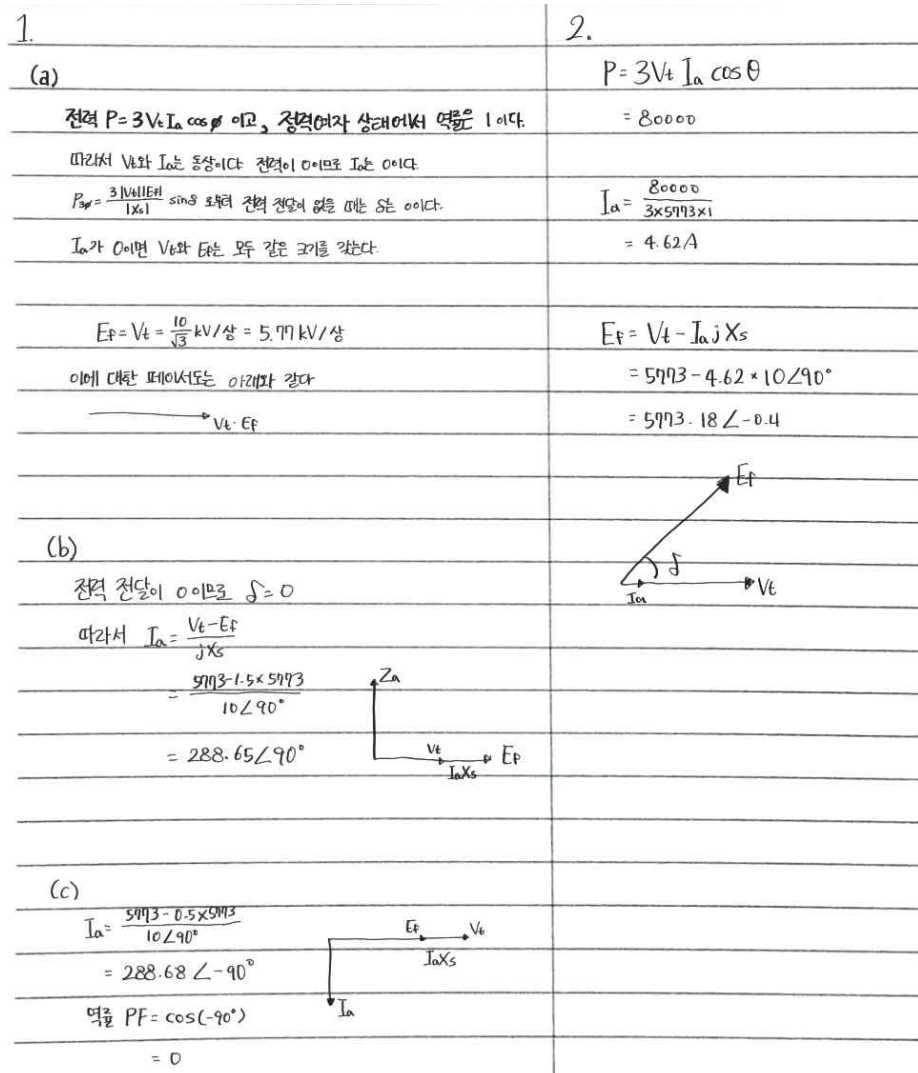 1.
(a)
전력 P = 3VtIa cosφ 이고, 정격여자 상태에서 역률은 1 이다.
따라서 Vt와 Ia는 동상이다 전력이 0이므로 Ia는 0이다.
P3φ = 3|Vt||Ef| / |Xs| sinδ 로부터 전력 전달이 없을 때는 δ는 0이다.
Ia가 0이면 Vt와 Ef는 모두 같은 크기를 갖는다.
Ef = Vt = 10/√3 kV/상 = 5.77 kV/상
이에 대한 페이서도는 아래와 같다
Vt · Ef
(b)
전력 전달이 0이므로 δ=0
따라서 Ia = Vt-Ef / jXs
= 5773-1.5×5773 / 10∠90°
= 288.65∠90°
Za
Vt
Ef
IaXs
(c)
Ia = 5773-0.5×5773 / 10∠90°
= 288.68∠-90°
Ef
Vt
IaXs
Ia
역률 PF = cos(-90°)
= 0
2.
P = 3Vt Ia cosθ
= 80000
Ia = 80000 / 3×5773×1
= 4.62A
Ef = Vt - Ia jXs
= 5773 - 4.62 × 10∠90°
= 5773.18∠-0.4
Ef
δ
Ia
Vt